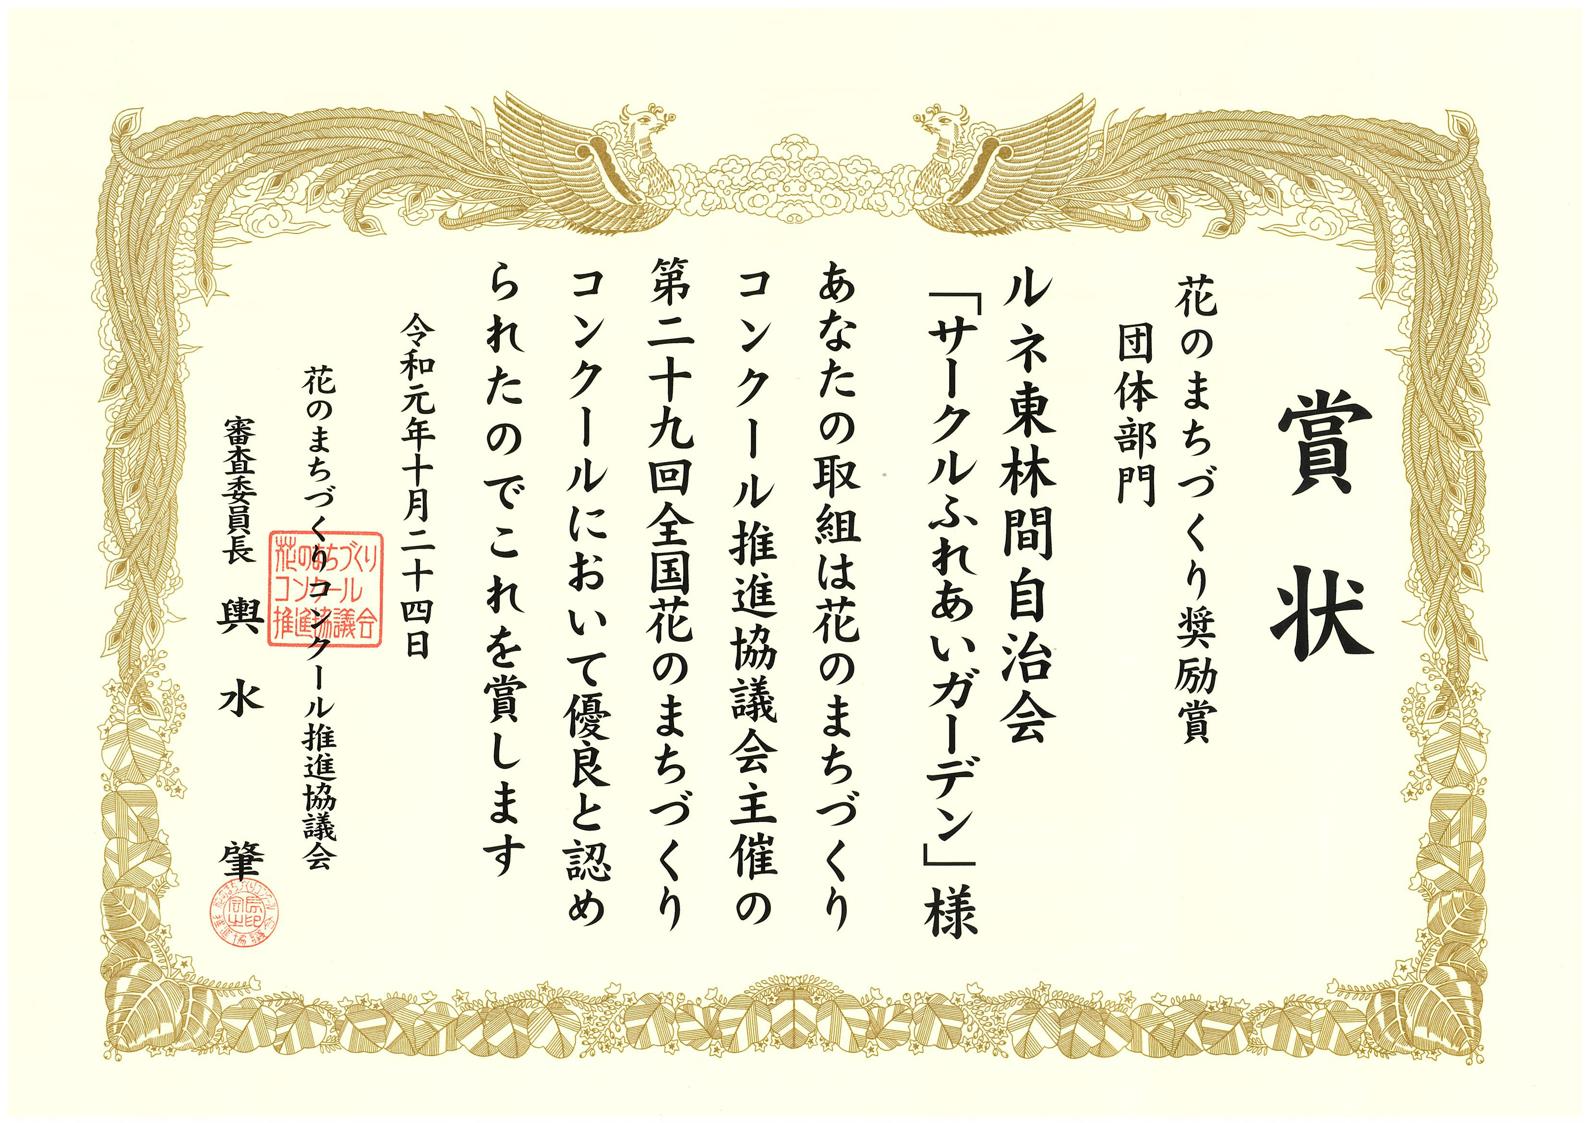 賞状
花のまちづくり奨励賞
団体部門
ルネ東林間自治会
「サークルふれあいガーデン」様
あなたの取組は花のまちづくり
コンクール推進協議会主催の
第二十九回全国花のまちづくり
コンクールにおいて優良と認め
られたのでこれを賞します
令和元年十月二十四日
花のまちづくりコンクール推進協議会
花のまちづくり
コンクール
推進協議会
審査委員長 輿水 肇